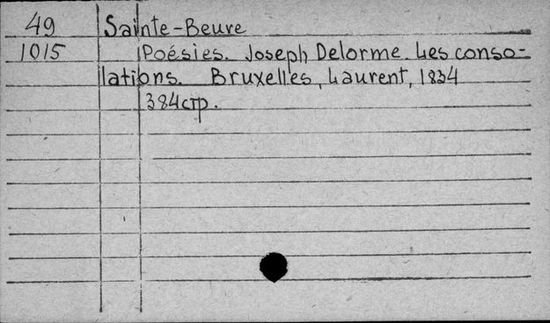 49 Sainte-Beuve
1015 Poésies. Joseph Delorme. Les conso-
lations. Bruxelles, Laurent, 1834
384стр.